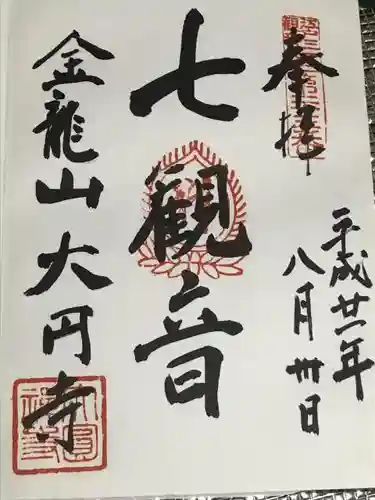 奉拝
平成廿一年
八月卅日
七観音
金龍山大円寺